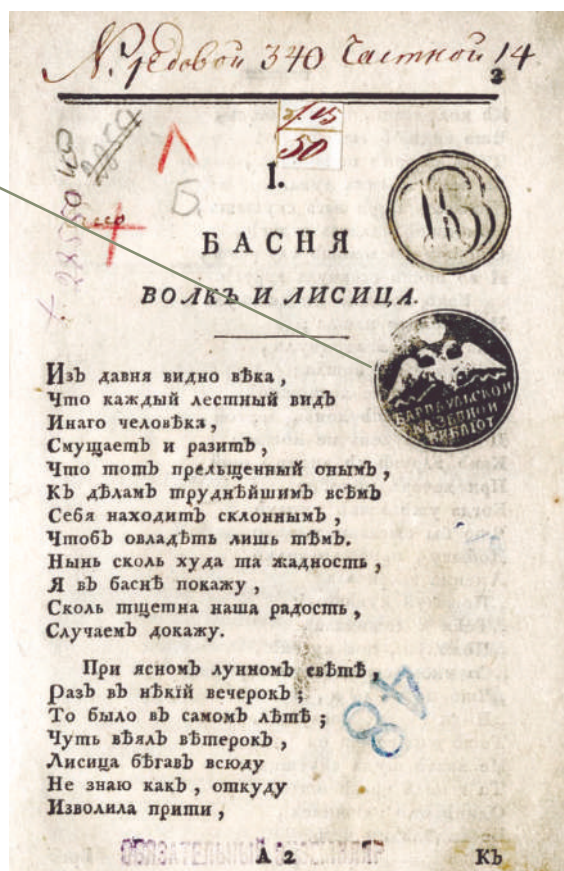 N. рядовой 340 Частной 14
3
50
I.
Б
БАСНЯ
ВОЛКЪ И ЛИСИЦА.
БАРНАУЛЬСКОЙ
КАЗЕННОЙ
БИБЛІОТ
Изъ давня видно вѣка,
Что каждый лестный видъ
Инаго человѣка,
Смущаетъ и разитъ,
Что тотъ прельщенный онымъ,
Къ дѣламъ труднѣйшимъ всѣмъ
Себя находитъ склоннымъ,
Чтобъ овладѣть лишь тѣмъ.
Нынь сколь худа та жадность,
Я въ баснѣ покажу,
Сколь тщетна наша радость,
Случаемъ докажу.
При ясномъ лунномъ свѣтѣ,
Разъ въ нѣкій вечерокъ;
То было въ самомъ лѣтѣ;
Чуть вѣялъ вѣтерокъ,
Лисица бѣгавъ всюду
Не знаю какъ, откуду
Изволила прити,
48
А 2 Къ